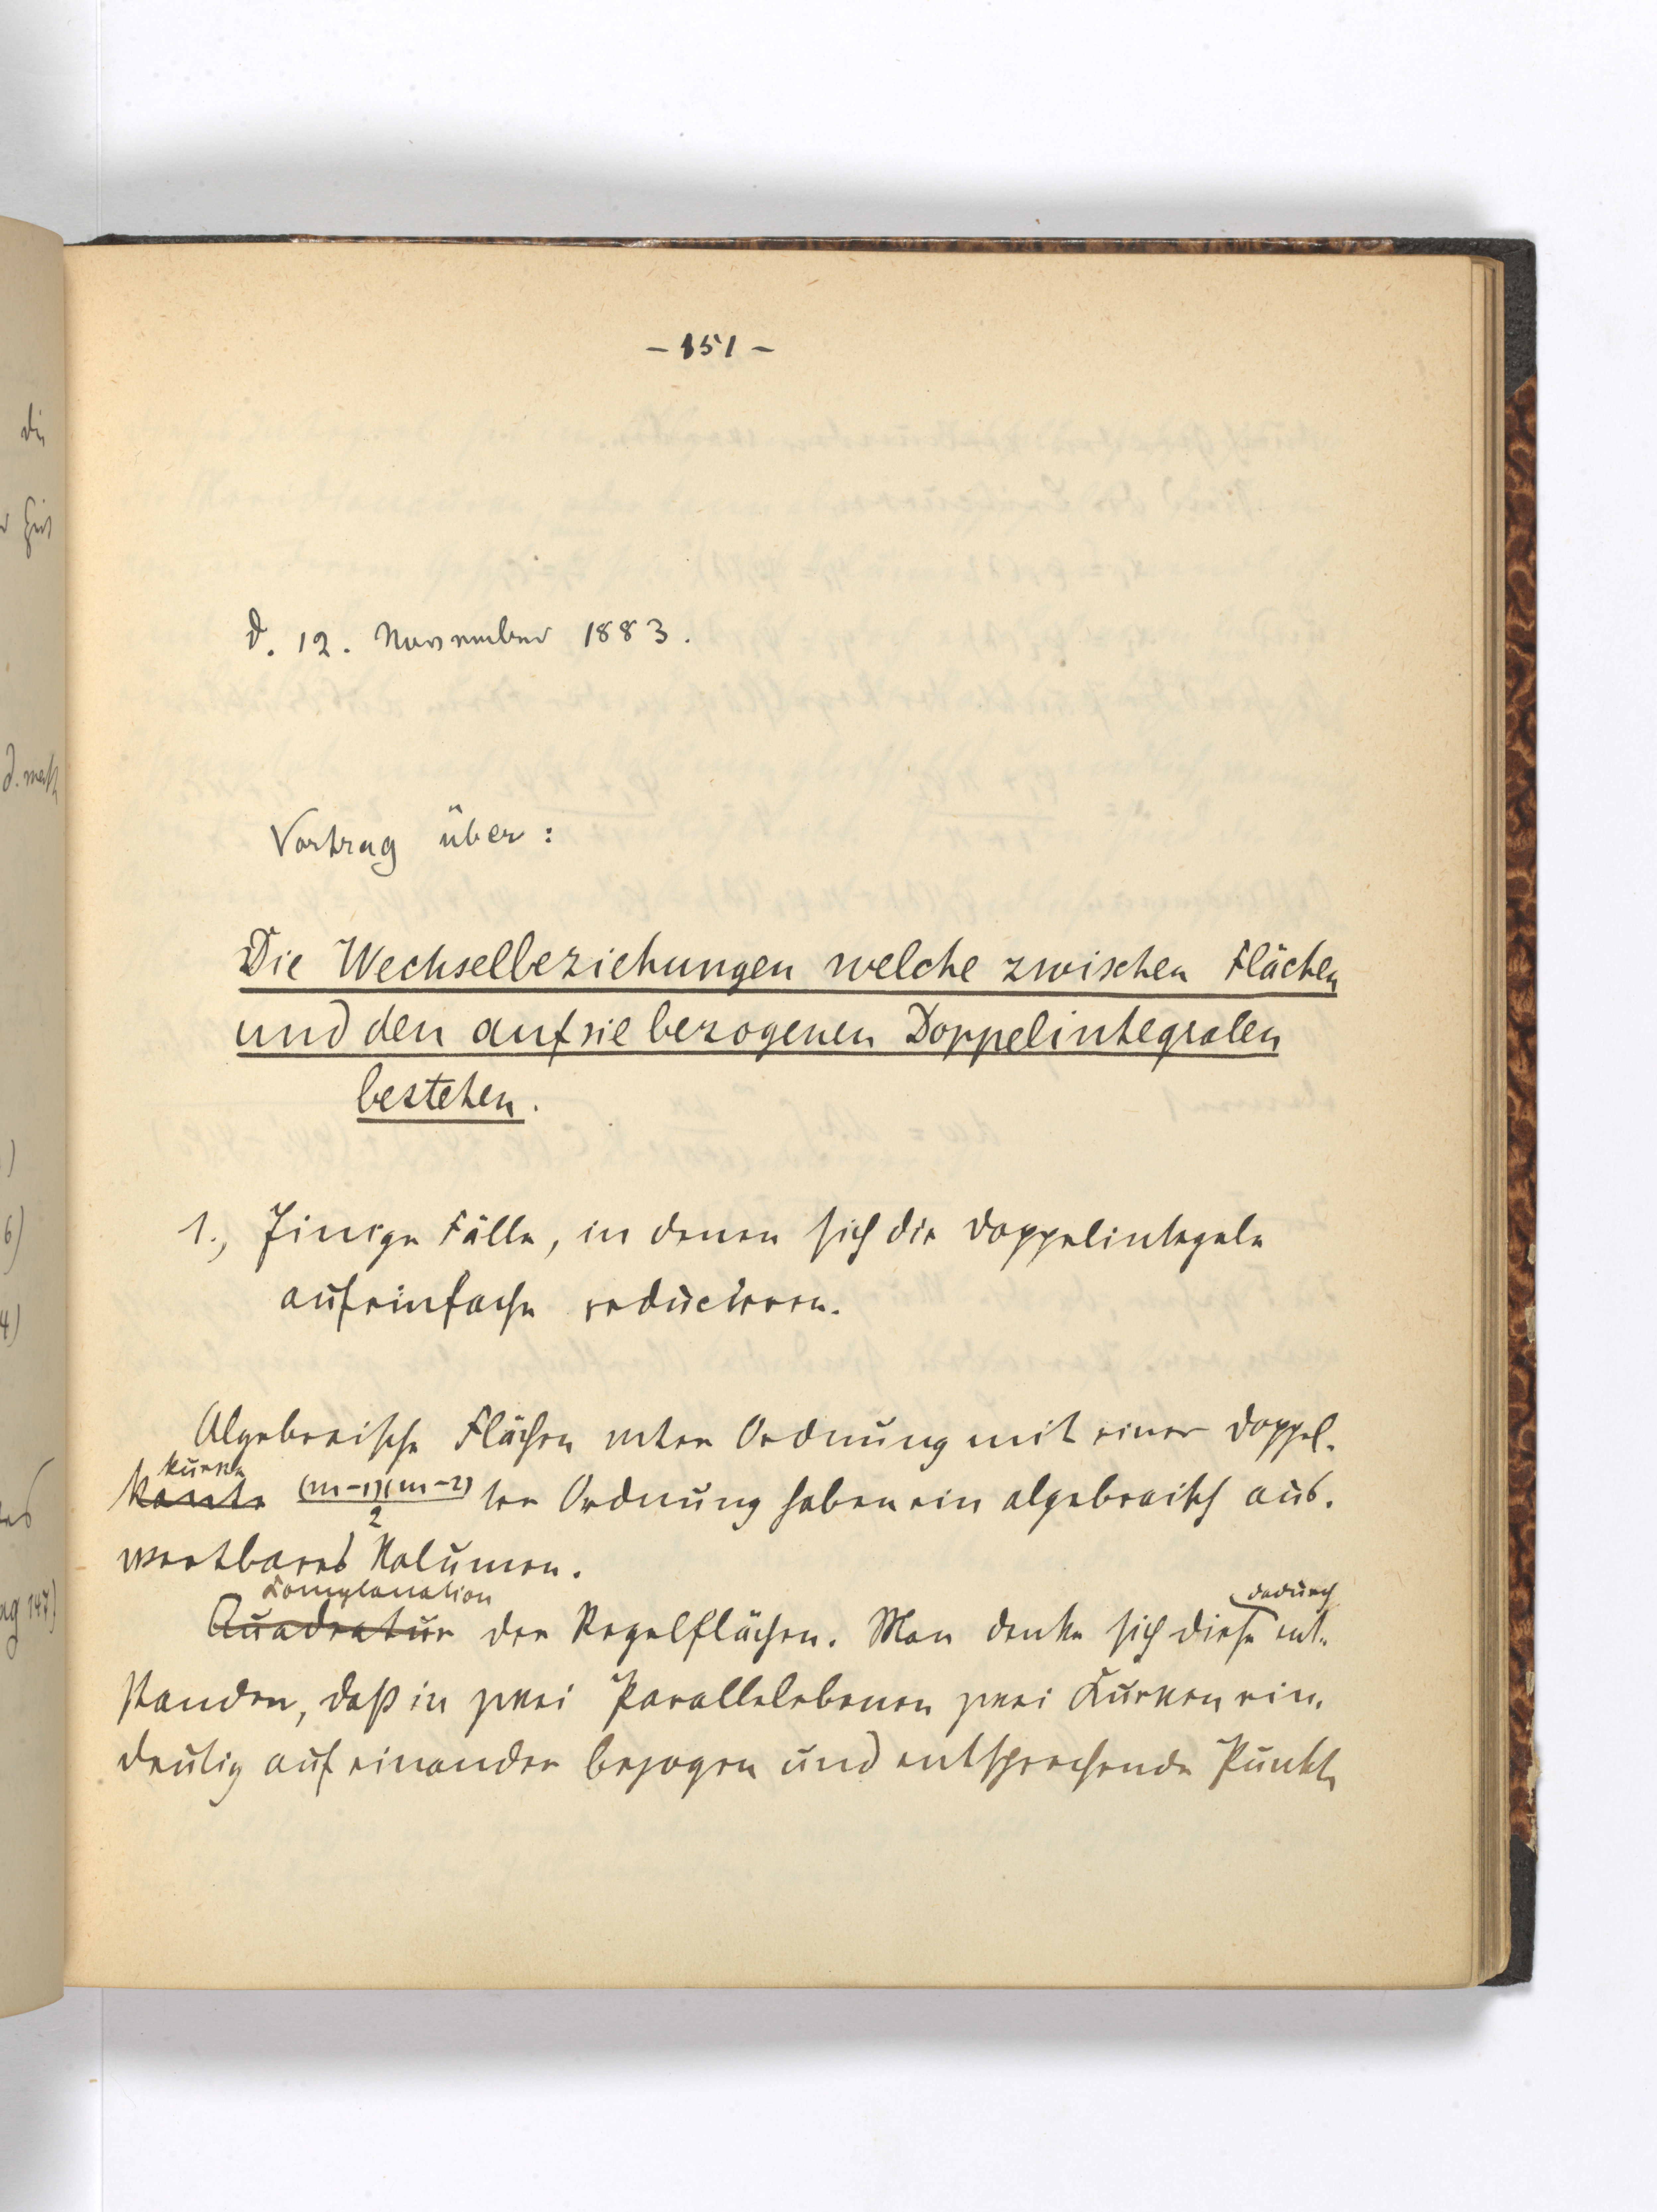 - 151 -
d. 12. November 1883.
Vortrag über:
Die Wechselbeziehungen welche zwischen Flächen
und den auf sie bezogenen Doppelintegralen
bestehen.
1., Einige Fälle, in denen sich die Doppelintegale
auf einfache reducieren.
Algebraische Flächen mter Ordnung mit einer Doppel-
kurve
kante (m-1)(m-2)/2 ter Ordnung haben ein algebraisch aus-
wertbares Volumen.
Complanation dadurch
Quadratur der Regelflächen. Man denke sich diese ent-
standen, daß in zwei Parallelebenen zwei Kurven ein-
deutig auf einander bezogen und entsprechende Punkte
die
d. math
6)
4)
147)